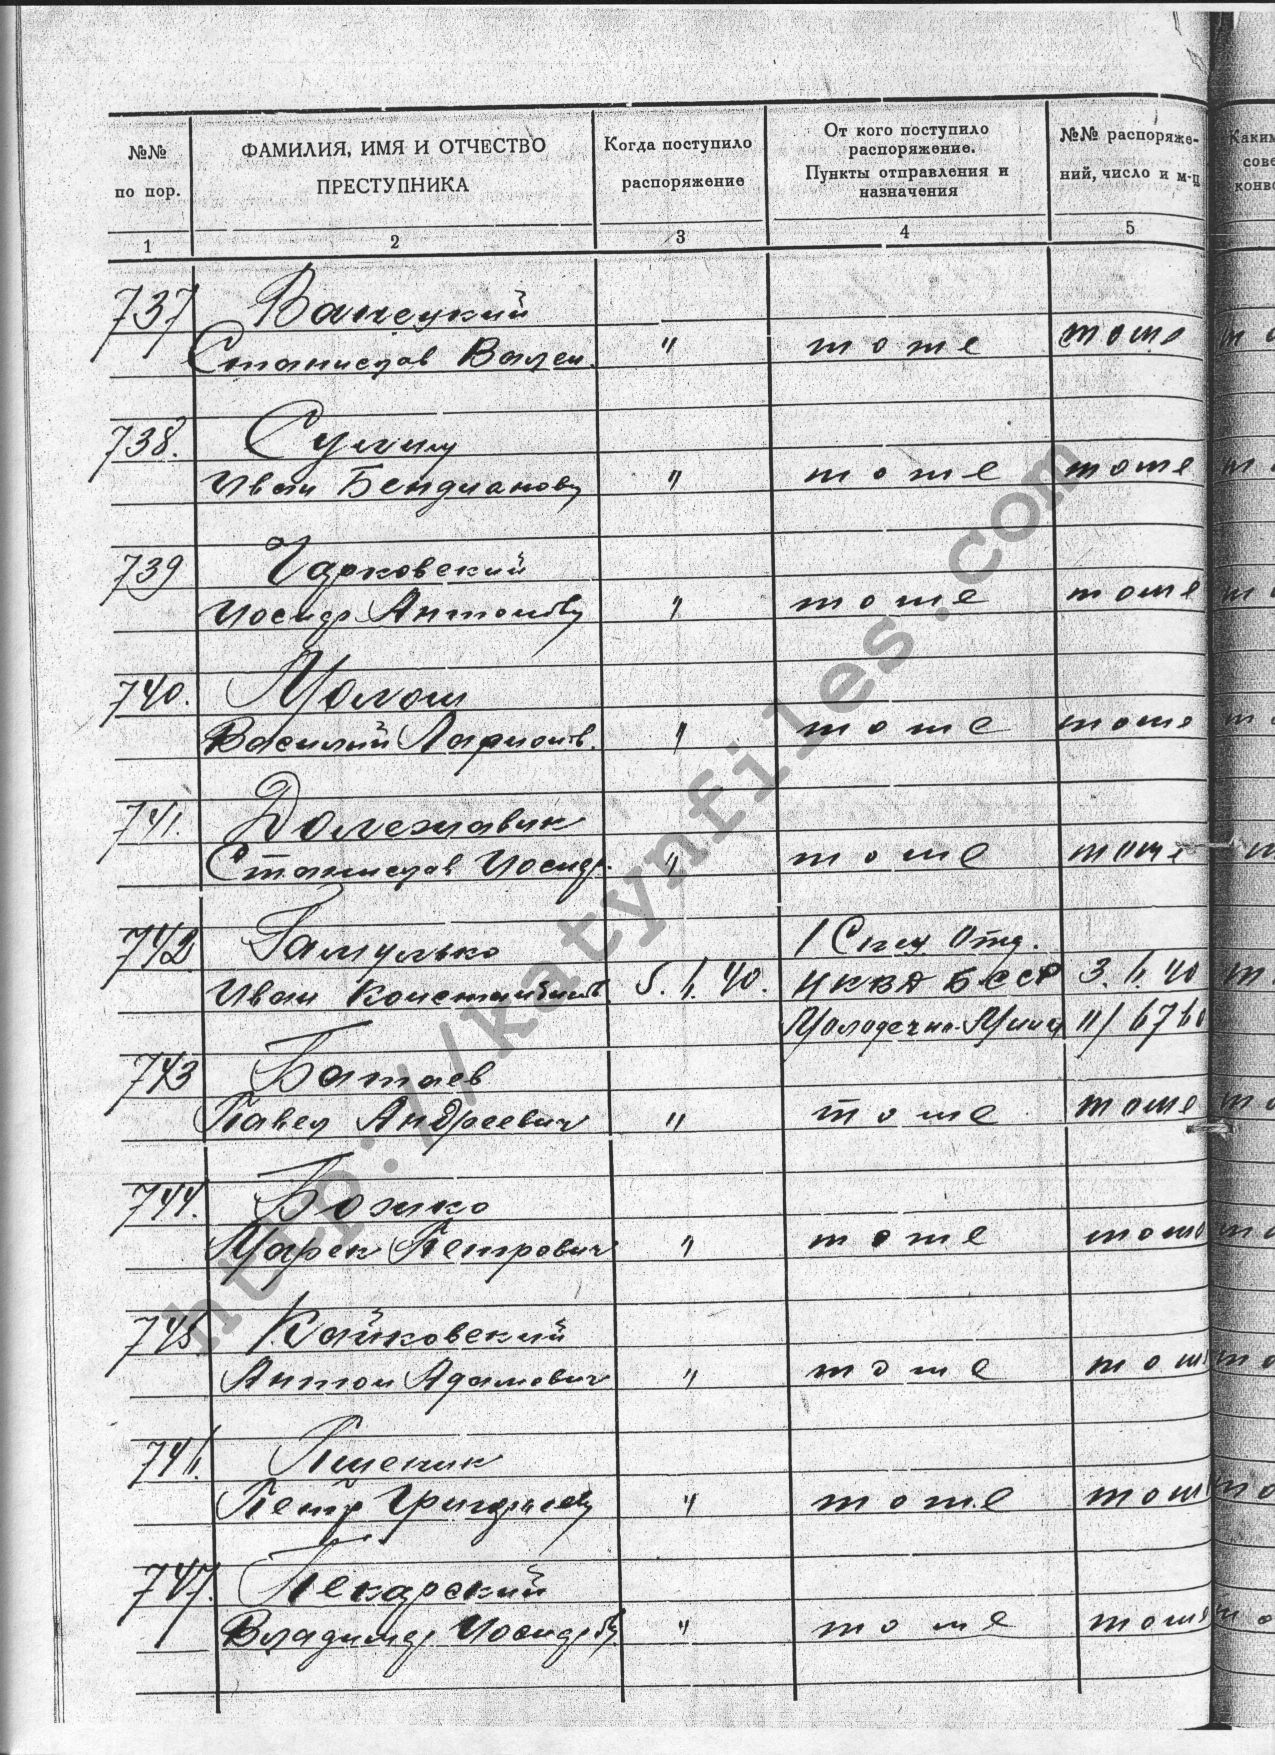 №№ по пор.
ФАМИЛИЯ, ИМЯ И ОТЧЕСТВО ПРЕСТУПНИКА
Когда поступило распоряжение
От кого поступило распоряжение. Пункты отправления и назначения
№№ распоряже-ний, число и м-ц
Каким
сове
конво
1 2 3 4 5
737 Ванецкий
Станислав Вален. " тоже тоже
738.
Иван " тоже тоже
739 Чарковский
Иосиф Антонов " тоже тоже
740. Молош
Василий Ларионов. " тоже тоже
741. Долежавик
Станислав Иосиф. " тоже тоже
742 Гамулько 1 Спец Отд.
Иван Константинов 5.II.40. НКВД БССР 3.II.40
Молодечно-Минск 11/6760
743 Батаев
Павел Андреевич " тоже тоже
744. Божко
Марек Петрович " тоже тоже
745. Кайковский
Антон Адамович " тоже тоже
746. Пшеник
Петр Григорьев " тоже тоже
747. Пекарский
Владимир Иосифов " тоже тоже
http://katynfiles.com